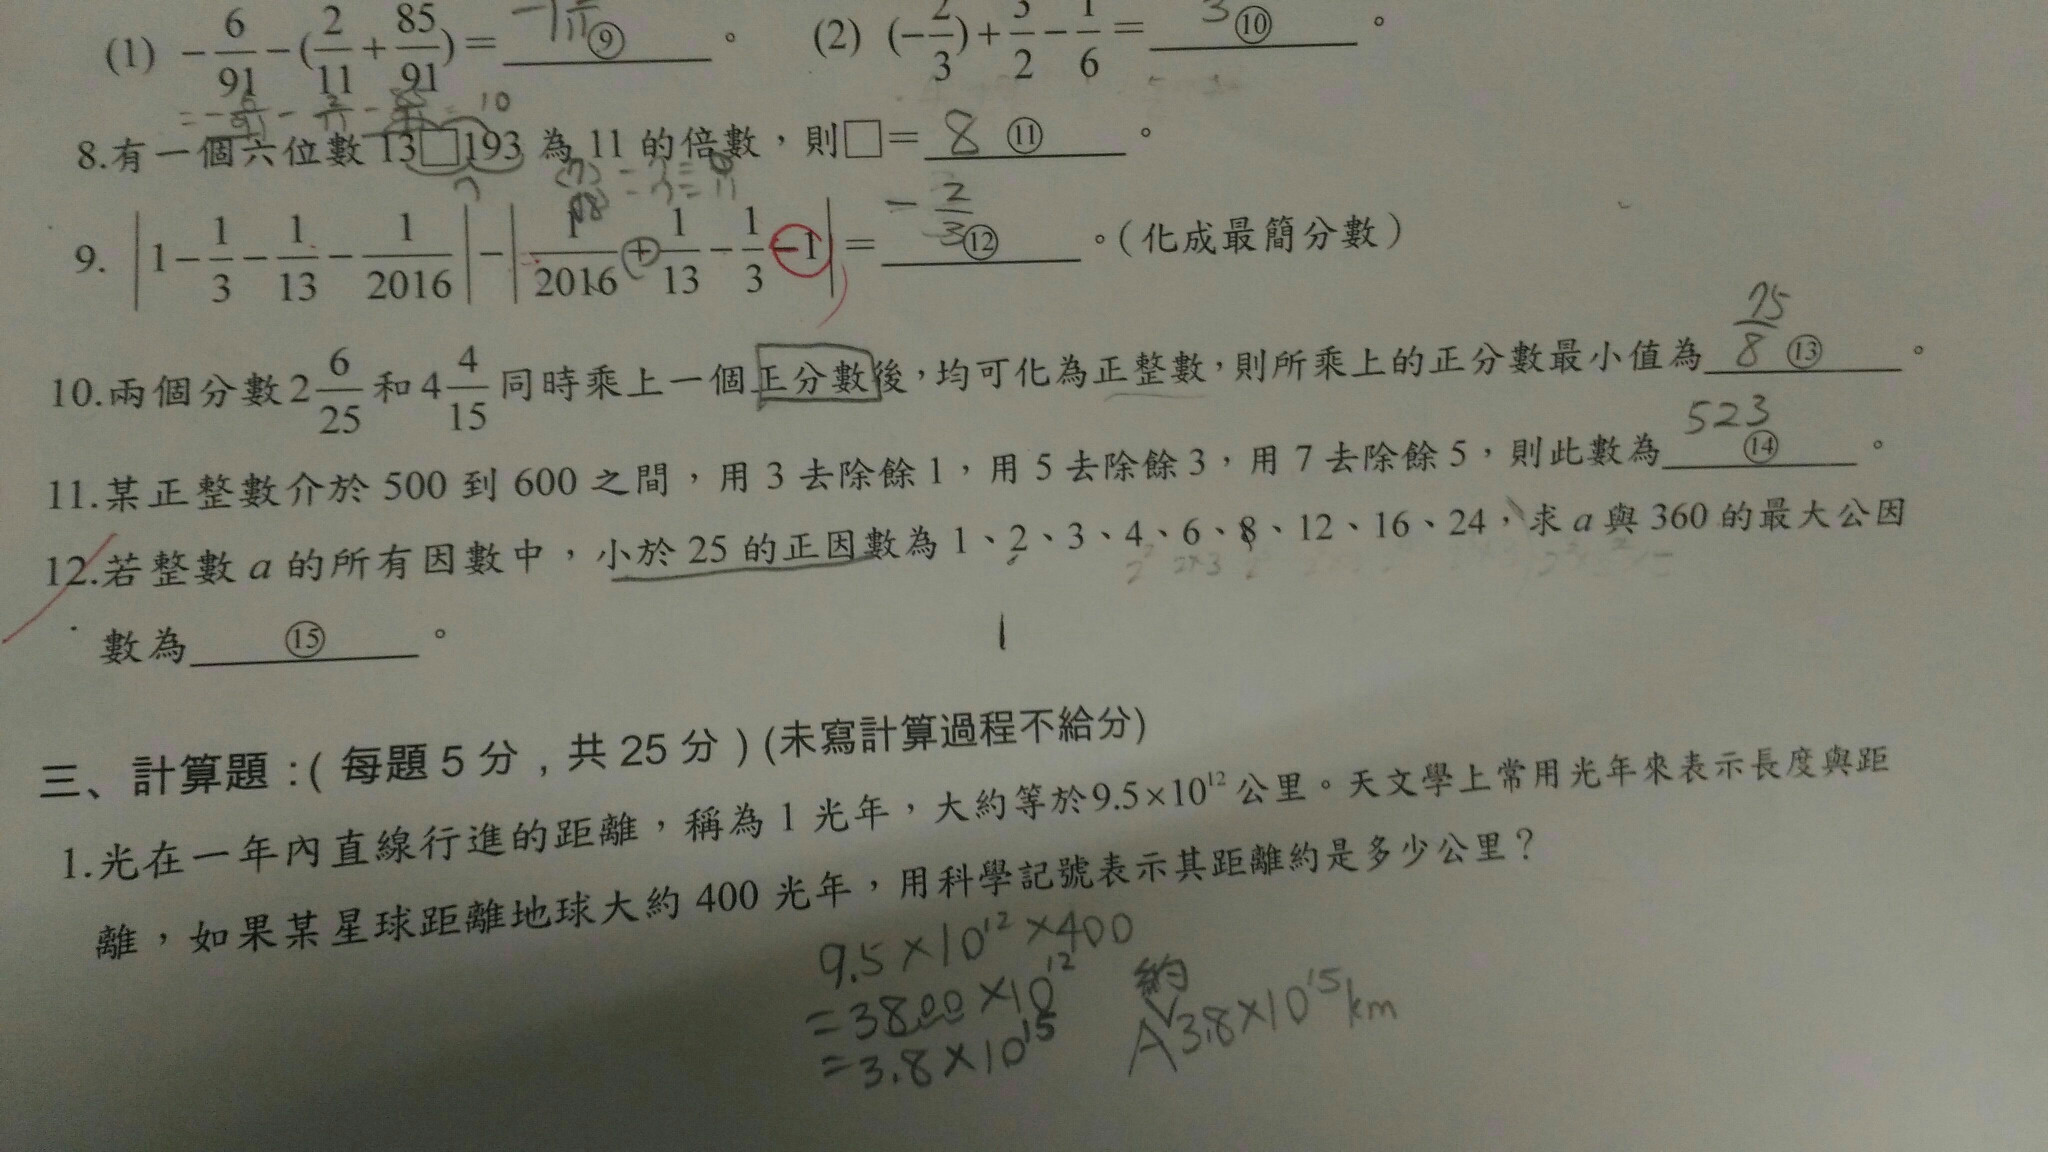 (1) -6/91-(2/11+85/91)= -1 2/11 ⑨ 。 (2) (-2/3)+3/2-1/6= ⑩ 。
8.有一個六位數 13□193 為 11 的倍數，則□= 8 ⑪ 。
9. |1-1/3-1/13-1/2016|-|1/2016+1/13-1/3-1|= -2/3 ⑫ 。(化成最簡分數)
10.兩個分數2 6/25和4 4/15同時乘上一個正分數後，均可化為正整數，則所乘上的正分數最小值為 75/8 ⑬ 。
11.某正整數介於 500 到 600 之間，用 3 去除餘 1，用 5 去除餘 3，用 7 去除餘 5，則此數為 523 ⑭ 。
12.若整數 a 的所有因數中，小於 25 的正因數為 1、2、3、4、6、8、12、16、24，求 a 與 360 的最大公因
數為 ⑮ 。
三、計算題：( 每題 5 分，共 25 分 ) (未寫計算過程不給分)
1.光在一年內直線行進的距離，稱為 1 光年，大約等於9.5×10¹²公里。天文學上常用光年來表示長度與距
離，如果某星球距離地球大約 400 光年，用科學記號表示其距離約是多少公里？
9.5×10¹²×400
=3800×10¹²
=3.8×10¹⁵
約
A 3.8×10¹⁵km